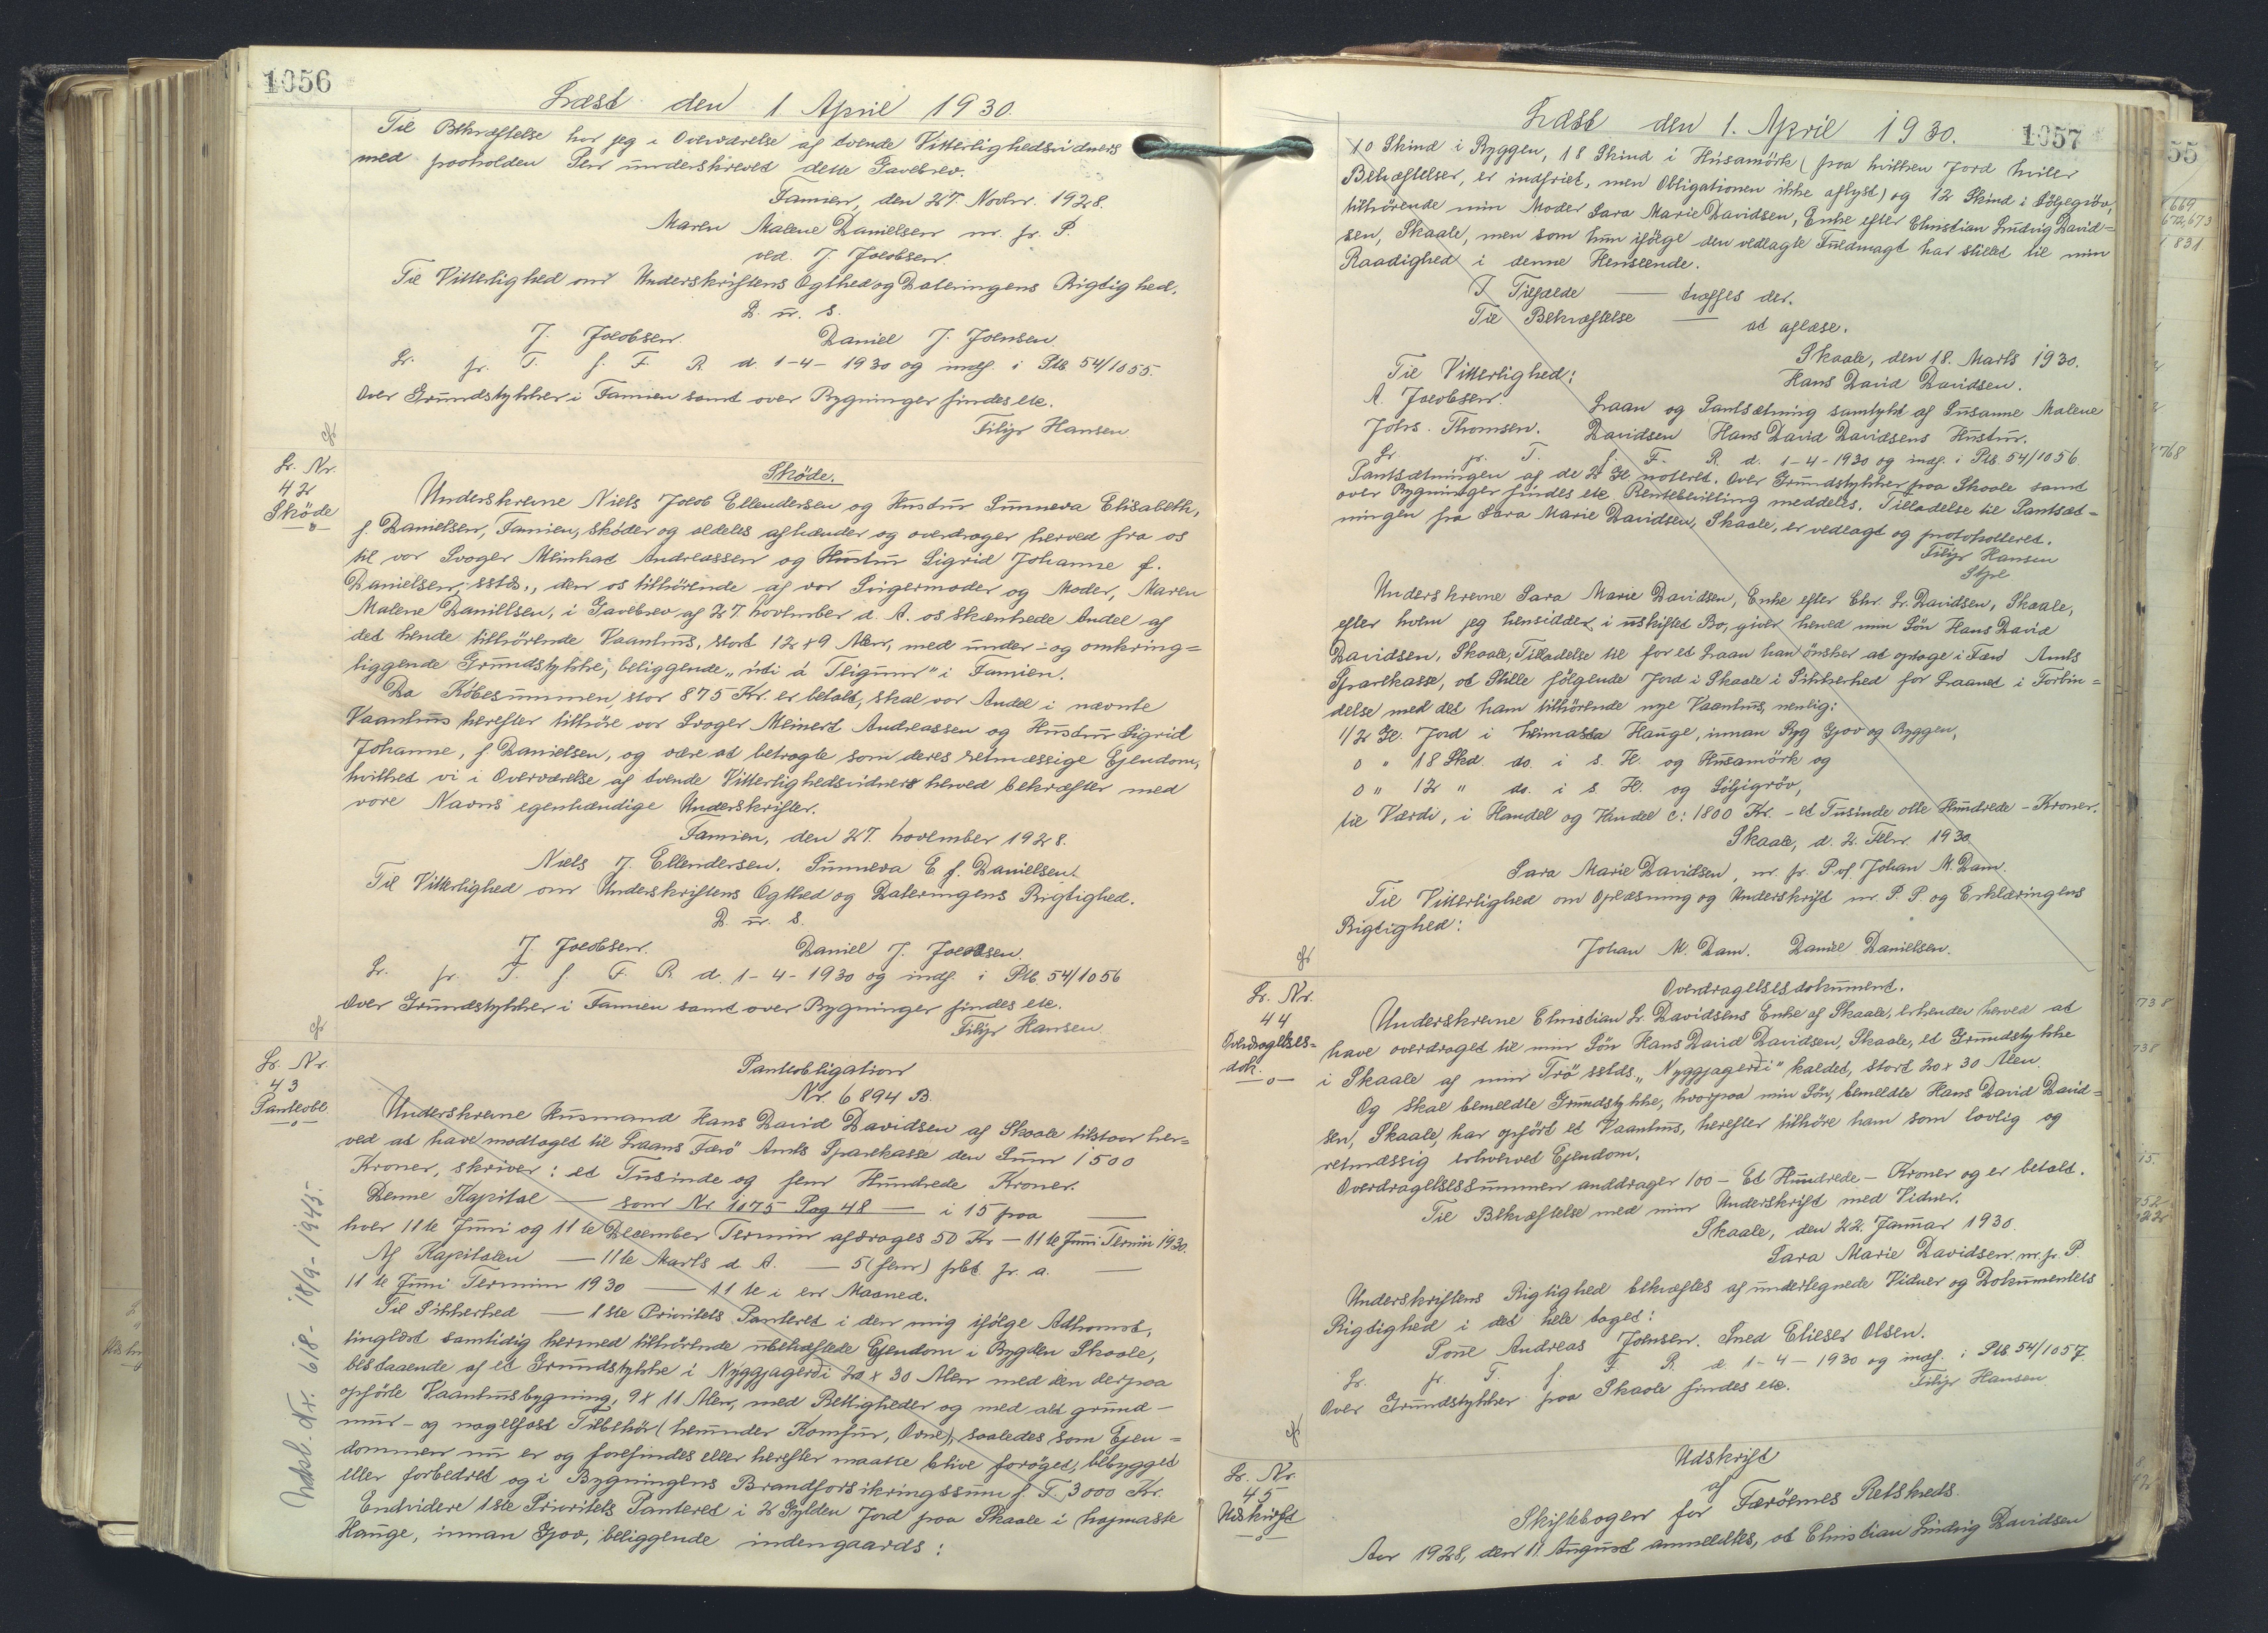 1056
Læst den 1 April 1930.
Til Bekræftelse har jeg i Overværelse af tvende Vitterlighedsvidners
med paaholden Pen underskrevet dette Gavebrev.
Famien, den 27. Novbr. 1928.
Maren Malene Danielsen m. f. P.
ved. J. Jacobsen.
Til Vitterlighed om Underskriftens Ægthed og Dateringens Rigtighed.
D. u. s.
J. Jacobsen. Daniel J. Joensen.
Lr. fr. T. f. F. R. d. 1-4-1930 og indf. i Ptb. 54/1055.
Over Grundstykker i Famien samt over Bygninger findes etc.
Filip Hansen
Lr. Nr.
42
Skøde
Skøde.
Underskrevne Niels Jacob Ellendersen og Hustru Sunneva Elisabeth,
f. Danielsen, Famien, skøder og aldeles afhænder og overdrager herved fra os
til vor Svoger Meinhat Andreassen og Hustru Sigrid Johanne f.
Danielsen, sstds., den os tilhørende af vor Svigermoder og Moder, Maren
Malene Daniellsen, i Gavebrev af 27 November d. A. os skænkede Andel af
det hende tilhørende Vaanhus, stort 12 x 9 Alen, med under- og omkring=
liggende Grundstykke, beliggende „úti á Tligum" i Famien.
Da Købesummen, stor 875 Kr. er betalt, skal vor Andel i nævnte
Vaanhus herefter tilhøre vor Svoger Meinert Andreassen og Hustru Sigrid
Johanne, f. Danielsen, og være at betragte som deres retmæssige Ejendom,
hvilket vi i Overværelse af tvende Vitterlighedsvidners herved bekræfter med
vore Navns egenhændige Underskrifter.
Famien, den 27. November 1928.
Niels J. Ellendersen. Sunneva E f. Danielsen.
Til Vitterlighed om Underskriftens Ægthed og Dateringens Rigtighed.
D. u. s.
J. Jacobsen. Daniel J. Jacobsen.
Lr. fr. T. f. F. R. d. 1-4-1930 og indf. i Ptb. 54/1056
Over Grundstykker i Famien samt over Bygninger findes etc.
Filip Hansen.
Lr. Nr.
43
Panteobl.
Udsl. Nr. 618 - 18/9 - 1945.
Panteobligation
Nr. 6894 B.
Underskrevne Husmand Hans David Davidsen af Skaale tilstaar her=
ved at have modtaget til Laans Færø Amts Sparekasse den Sum 1500
Kroner, skriver: et Tusinde og fem Hundrede Kroner.
Denne Kapital — som Nr. 1075 Pag 48 — i 15 paa —
hver 11te Juni og 11te December Termin afdrages 50 Kr — 11te Juni Termin 1930.
Af Kapitalen — 11te Marts d. A. — 5 (fem) pct. pr. a. —
11te Juni Termin 1930 — 11te i en Maaned.
Til Sikkerhed — 1ste Prioritets Panteret i den mig ifølge Adkomst,
tinglæst samtidig hermed tilhørende ubehæftede Ejendom i Bygden Skaale,
bestaaende af et Grundstykke i Nyggjagerði 20 x 30 Alen med den derpaa
opførte Vaanhusbygning, 9 x 11 Alen, med Rettigheder og med alt grund-
mur- og nagelfast Tilbehør (herunder Komfur, Ovne), saaledes som Ejen=
dommen nu er og forefindes eller herefter maatte blive forøget, bebygget
eller forbedret og i Bygningens Brandforsikringssum f. T. 3000 Kr.
Endvidere 1ste Prioritets Panteret i 2 Gylden Jord paa Skaale i hajmasta
Hauge, innan Gjov, beliggende indengaards:
1057
Læst den 1. April 1930.
10 Skind i Ryggen, 18 Skind i Húsamörk (paa hvilken Jord hviler
Behæftelser, er indfriet, men Obligationen ikke aflyst) og 12 Skind i Søljegröv,
tilhørende min Moder Sara Marie Davidsen, Enke efter Christian Ludvig David=
sen, Skaale, men som hun ifølge den vedlagte Fuldmagt har stillet til min
Raadighed i denne Henseende.
I Tilfælde — træffes der.
Til Bekræftelse — at aflæse.
Skaale, den 18. Marts 1930.
Til Vitterlighed: Hans David Davidsen.
A. Jacobsen. Laan og Pantsætning samtykt af Susanne Malene
Johs. Thomsen. Davidsen Hans David Davidsens Hustru.
Lr. fr. T. f. F. R. d. 1-4-1930 og indf. i Ptb. 54/1056.
Pantsætningen af de 2 Gl. noteret. Over Grundstykker paa Skaale samt
over Bygninger findes etc. Rentebevilling meddeles. Tilladelse til Pantsæt=
ningen fra Sara Marie Davidsen, Skaale, er vedlagt og protokolleret.
Filip Hansen
Underskrevne Sara Marie Davidsen, Enke efter Chr. L. Davidsen, Skaale,
efter hvem jeg hensidder i uskiftet Bo, giver herved min Søn Hans David
Davidsen, Skaale, Tilladelse til for et Laan han ønsker at optage i Færø Amts
Sparekasse, at stille følgende Jord i Skaale i Sikkerhed for Laanet i Forbin=
delse med det ham tilhørende nye Vaanhus, nemlig:
1/2 Gl. Jord i heimasta Hauge, innan Ryg Gjov og Ryggen,
0 " 18 Skd. do. i s. H. og Húsamörk og
0 " 12 " do. i s. H. og Søljigröv,
til Værdi, i Handel og Vandel c: 1800 Kr. - et Tusinde otte Hundrede - Kroner.
Skaale, d. 2. Febr. 1930.
Sara Marie Davidsen, m. f. P. af Johan M. Dam.
Til Vitterlighed om Oplæsning og Underskrift m. P. P. og Erklæringens
Rigtighed:
Johan M. Dam. Daniel Danielsen.
Lr. Nr.
44
Overdragelses=
dok.
Overdragelsesdokument.
Underskrevne Christian L. Davidsens Enke af Skaale, erkender herved at
have overdraget til min Søn Hans David Davidsen, Skaale, et Grundstykke
i Skaale af min Trö sstds. „Nyggjagerði" kaldet, stort 20 x 30 Alen.
Og skal bemeldte Grundstykke, hvorpaa min Søn, bemeldte Hans David David=
sen, Skaale, har opført et Vaanhus, herefter tilhøre ham som lovlig og
retmæssig erhvervet Ejendom.
Overdragelsessummen anddrager 100 - Et Hundrede - Kroner og er betalt.
Til Bekræftelse med min Underskrift med Vidner.
Skaale, den 22. Januar 1930.
Sara Marie Davidsen. m. f. P.
Underskriftens Rigtighed bekræftes af undertegnede Vidner og Dokumentets
Rigtighed i det hele taget:
Poul Andreas Joensen. Smed Elieser Olsen.
Lr. fr. T. f. F. R. d. 1-4-1930 og indf. i Ptb. 54/1057.
Over Grundstykker paa Skaale findes etc. Filip Hansen
Lr. Nr.
45
Udskrift
Udskrift
af
Skiftebogen for Færøernes Retskreds.
Aar 1928, den 11. August anmeldtes, at Christian Ludvig Davidsen